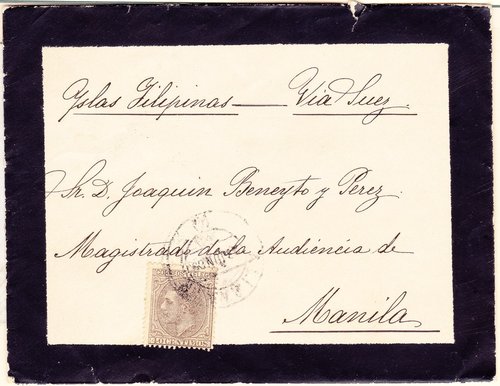 Yslas Filipinas — Via Suez.
Sr. D. Joaquin Beneyto y Perez.
Magistrado de la Audiencia de
Manila.
CENTIMOS